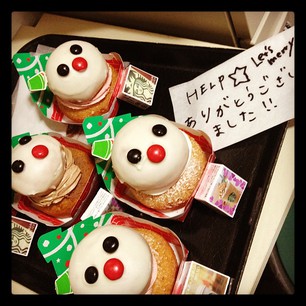 HELP☆ Let's merry
ありがとうござい
ました!!